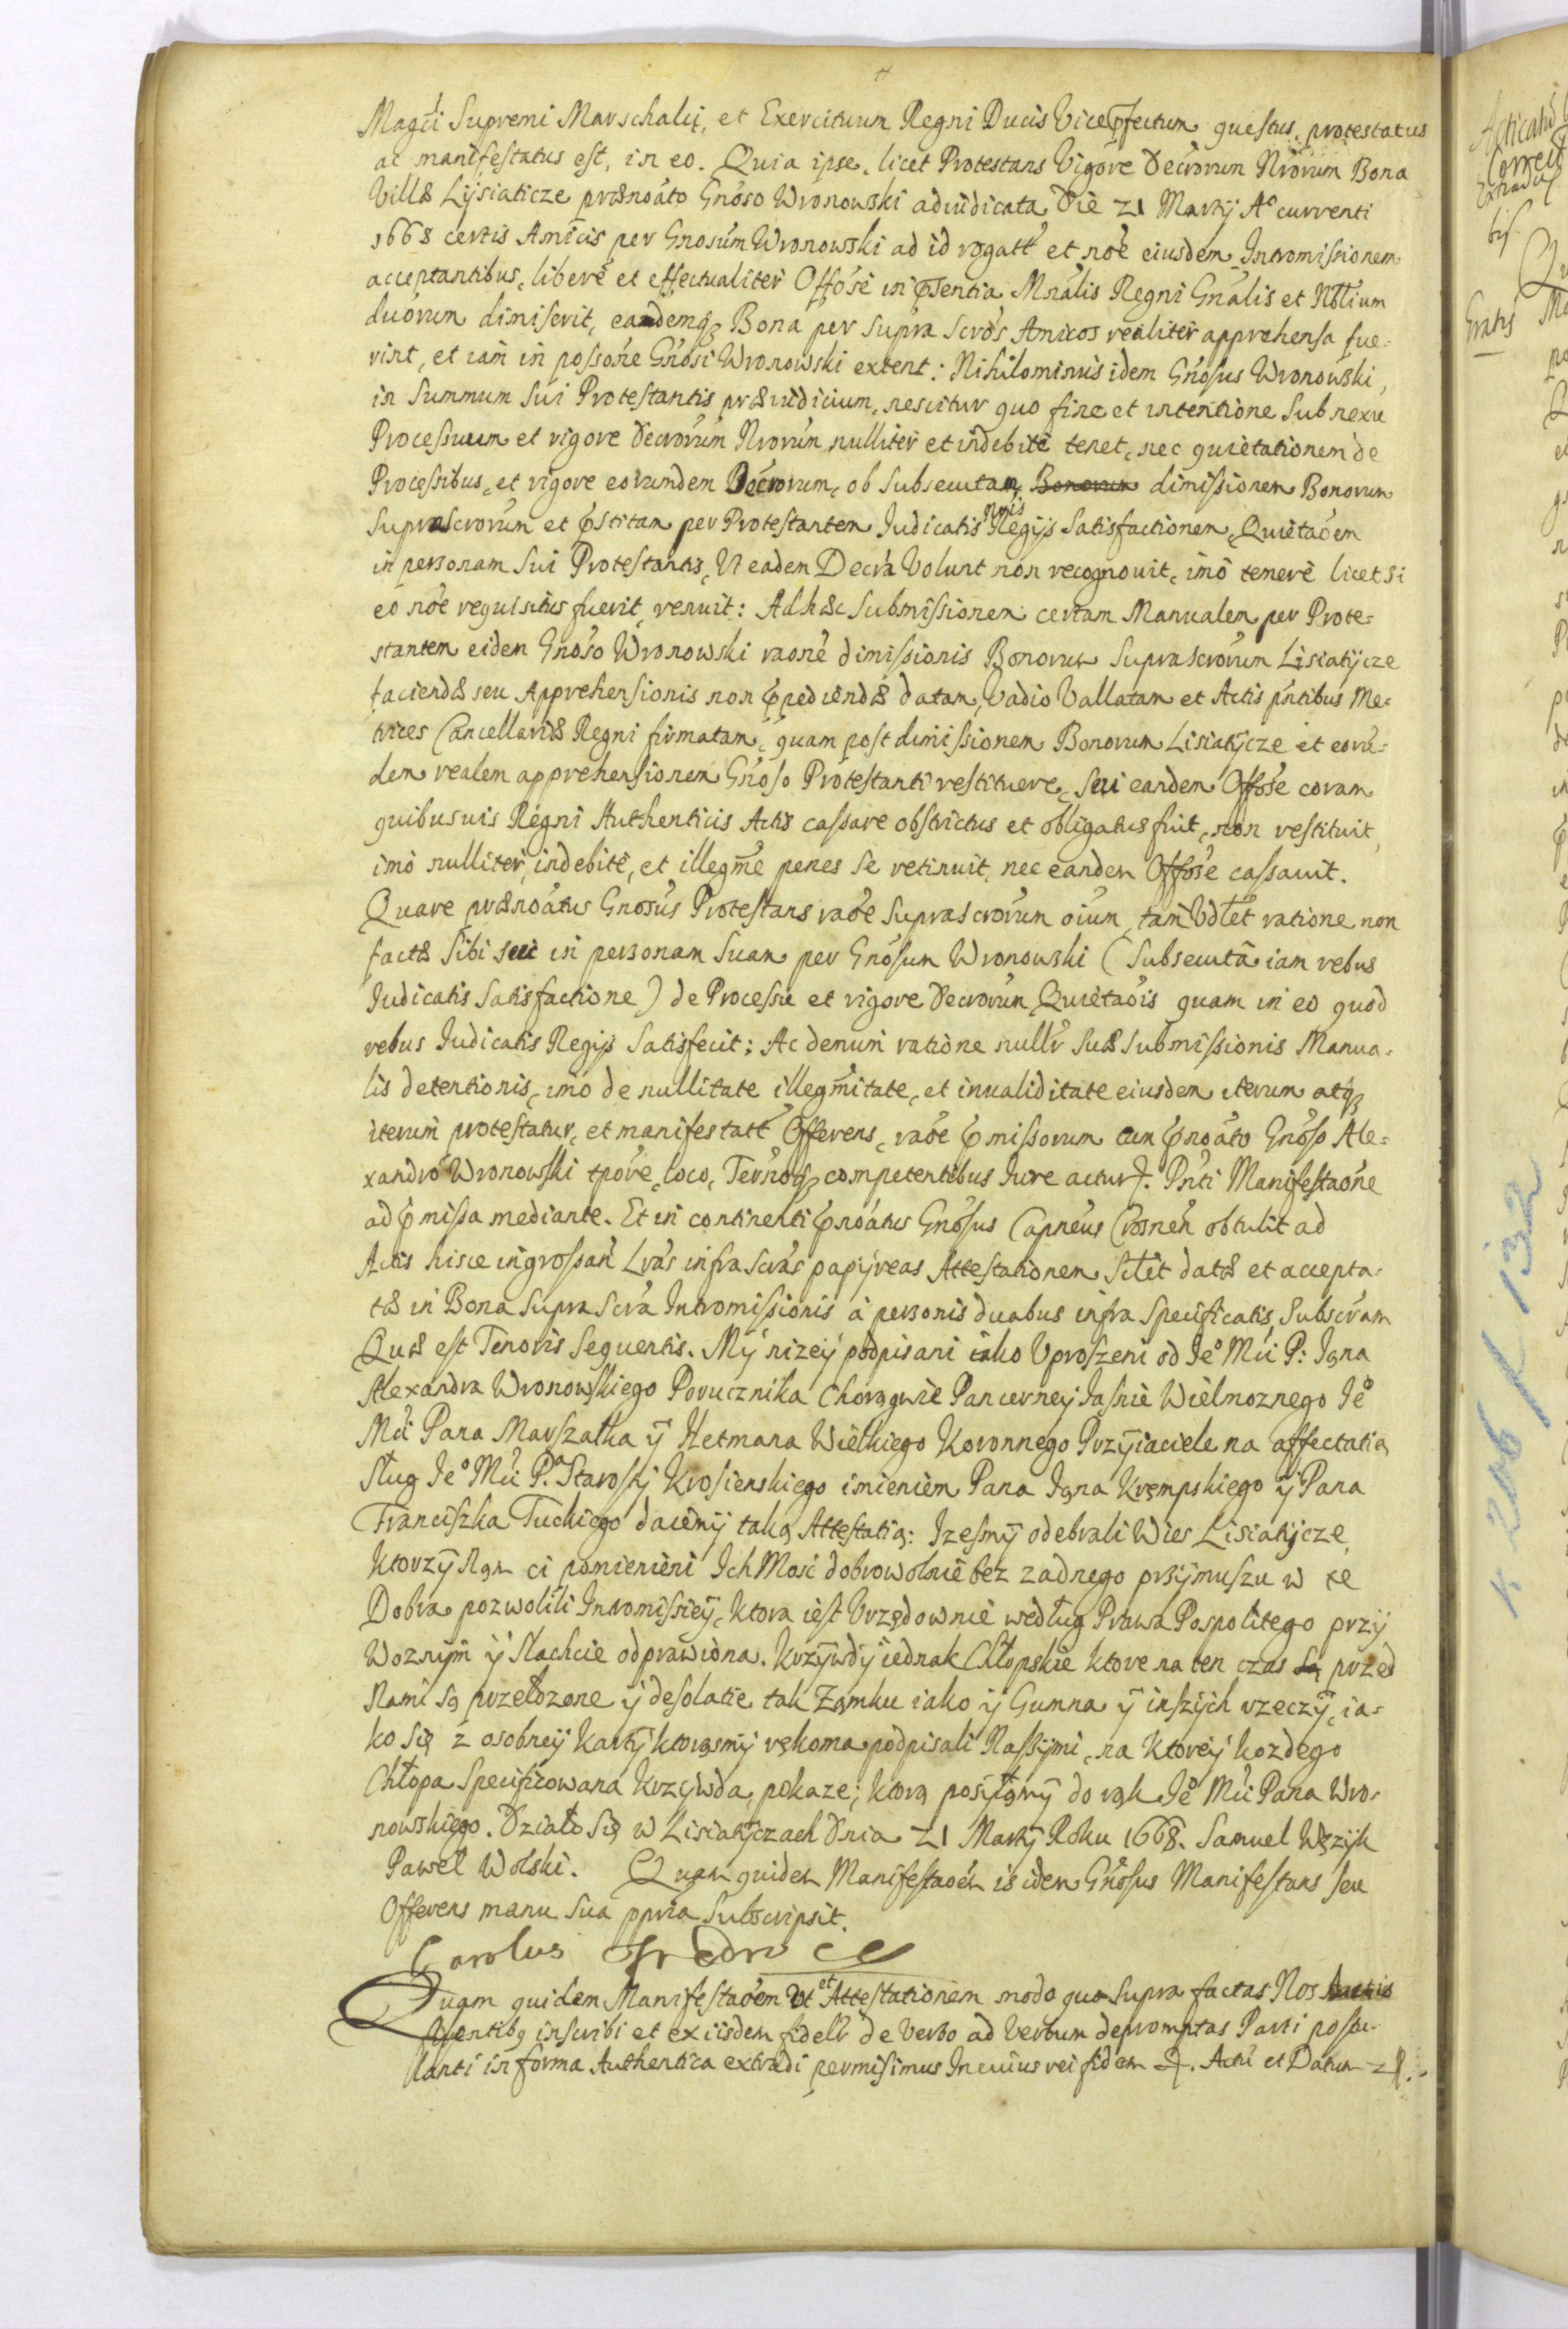 Magci Supremi Marschalci, et Exercituum Regni Ducis Viceꝑfectum questus, protestatus
ac manifestatus est, in eo. Quia ipse, licet Protestans Vigore Decrorum Nrorum Bona
Villæ Lysiaticze prænoato Gnoso Wronowski adiudicata Die 21 Martij Aº currenti
1668 certis Amicis per Gnosum Wronowski ad id rogatt et noe eiusdem Intromissionem
acceptantibus, libere et effectualiter Offose in ꝑsentia Mnalis Regni Gnalis et Nblium
duorum dimiserit, eandemq₃ Bona per supra scros Amicos realiter apprehensa fue-
rint, et iam in possone Gnosi Wronowski extent: Nihilominus idem Gnosus Wronowski,
in Summum Sui Protestantis præiudicium, nescitur quo fine et intentione Sub nexu
Processuum et vigore Decrorum Nrorum nulliter et indebite tenet, nec quietationem de
Processibus, et vigore eorundem Decrorum, ob Subsecutam, Bonorum dimissionem Bonorum
Suprascrorum et ꝑstitam per Protestantem Judicatis nris Regijs Satisfactionem, Quietaoem
in personam Sui Protestantis, Vt eadem Decra Volunt non recognouit, imo temere licet si
eo noe requisitus fuerit, renuit: Adhæc Submissionem certam Manualem per Prote-
stantem eidem Gnoso Wronowski raone dimissionis Bonorum Suprascrorum Lisiatycze
faciendæ seu Apprehensionis non ꝑpediendæ datam, Vadio Vallatam et Actis pntibus Me-
trices Cancellariæ Regni firmatam, quam post dimissionem Bonorum Lisiatycze et eorú-
dem realem apprehensionem Gnoso Protestanti restituere, seu eandem Offose coram
quibusuis Regni Authenticis Actis cassare obstrictus et obligatus fuit, non restituit,
imo nulliter, indebite, et illegme penes se retinuit, nec eandem Offose cassauit.
Quare prænoatus Gnosus Protestans raoe Suprascrorum oium, tam Vdlet ratione non
factæ Sibi seu in personam Suam per Gnosum Wronowski (Subsecuta iam rebus
Judicatis Satisfactione) de Processu et vigore Decrorum Quietaois quam in eo quod
rebus Judicatis Regijs Satisfecit; Ac demum ratione nullr Suæ Submissionis Manua-
lis detentionis, imo de nullitate illegmitate, et inualiditate eiusdem iterum atq₃
iterum protestatur, et manifestatt Offerens, raoe ꝑmissorum cum ꝑnoato Gnoso Ale-
xandro Wronowski tpore, loco, Ternoq₃ competentibus Jure actur̃. Pnti Manifestaone
ad ꝑmissa mediante. Et in continenti ꝑnoatus Gnosus Capneus Crosnen obtulit ad
Actis hisce ingrossan Lras infra scras papyreas Attestationem Sclet datæ et accepta-
tæ in Bona supra scra Intromissionis a personis duabus infra specificatis, Subscram
Quæ est Tenoris Sequentis. My nizey podpisani iako Vproszeni od Jeº Mci P: Jąna
Alexandra Wronowskiego Porucznika Chorągwie Pancerney Jasnie Wielmoznego Jeº
Mci Pana Marszałka y Hetmana Wielkiego Koronnego Przyiaciele na affectatią
Sług Jeº Mci P.ª Starosty Krosienskiego imieniem Pana Jąna Krempskiego y Pana
Franciszka Tuckiego daiemy taką Attestatią: Jzesmy odebrali Wies Lisiatycze,
Ktorzy Nąm ci pomienieni Jch Mosc dobrowolnie bez zadnego przymuszu w te
Dobra pozwolili Intromissiey, Ktora iest Vrzędownie według Prawa Pospolitego przy
Woznym y Slachcie odprawiona. Krzywdy iednak Chłopskie Ktore na ten czas są przed
Nami są przełozone y desolatie tak Zamku iako y Gumna y inszych rzeczy, ia-
ko Się z osobney Karty ktorąsmy rękoma podpisali Naszymi, na Ktorey kozdego
Chłopa Specificowana krzywda, pokaze; ktorą posyłamy do rąk Jeº Mci Pana Wro-
nowskiego. Działo Się w Lisiatyczach Dnia 21 Marty Roku 1668. Samuel Wężyk
Paweł Wolski. Quam quidem Manifestaoem is idem Gnosus Manifestans seu
Offerens manu Sua ppria Subscripsit.
Carolus Fredro
Quam quidem Manifestaoem Vt et Attestationem modo quo Supra factas Nos Actis
ꝑsentibq inscribi et ex iisdem fidelr de Verbo ad Verbum depromptas Parti postu-
lanti in forma Authentica extradi permisimus In cuius rei fidem. Actu et Datum
Acticatio
Correct
Extradit
bis
Gratis
K 206 132